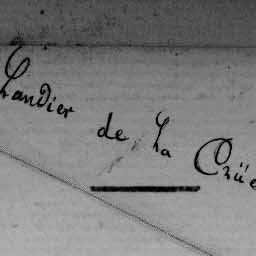 Landier de La Crüe